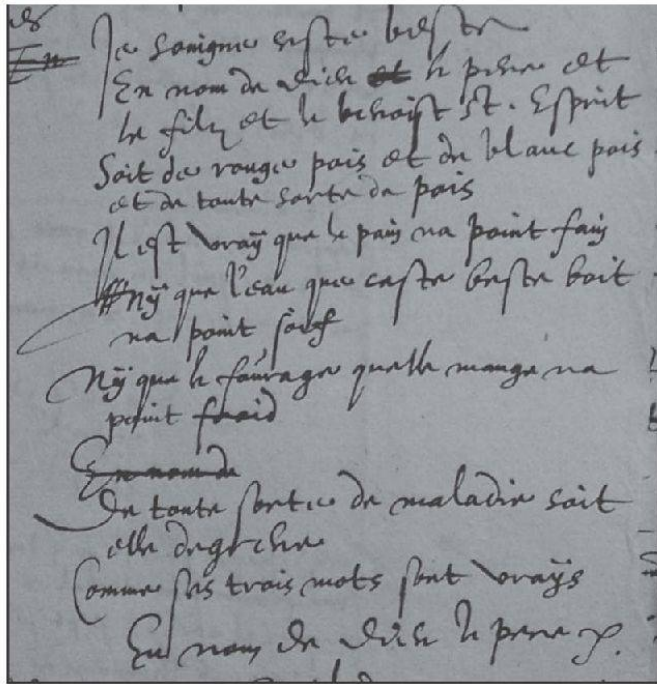 Je soingne ceste beste
En nom de Dieu et le pere et
le filz et le benoist st. Esprit
Soit de rouge pois et de blanc pois
et de toute sorte de pois
Il est vraÿ que le pain na point fain
nÿ que l'eau que ceste beste boit
na point soif
Nÿ que le fourage quelle mange na
point froid
En nom de
De toute sorte de maladie soit
elle
Comme ses trois mots sont vraÿs
En nom de Dieu le pere